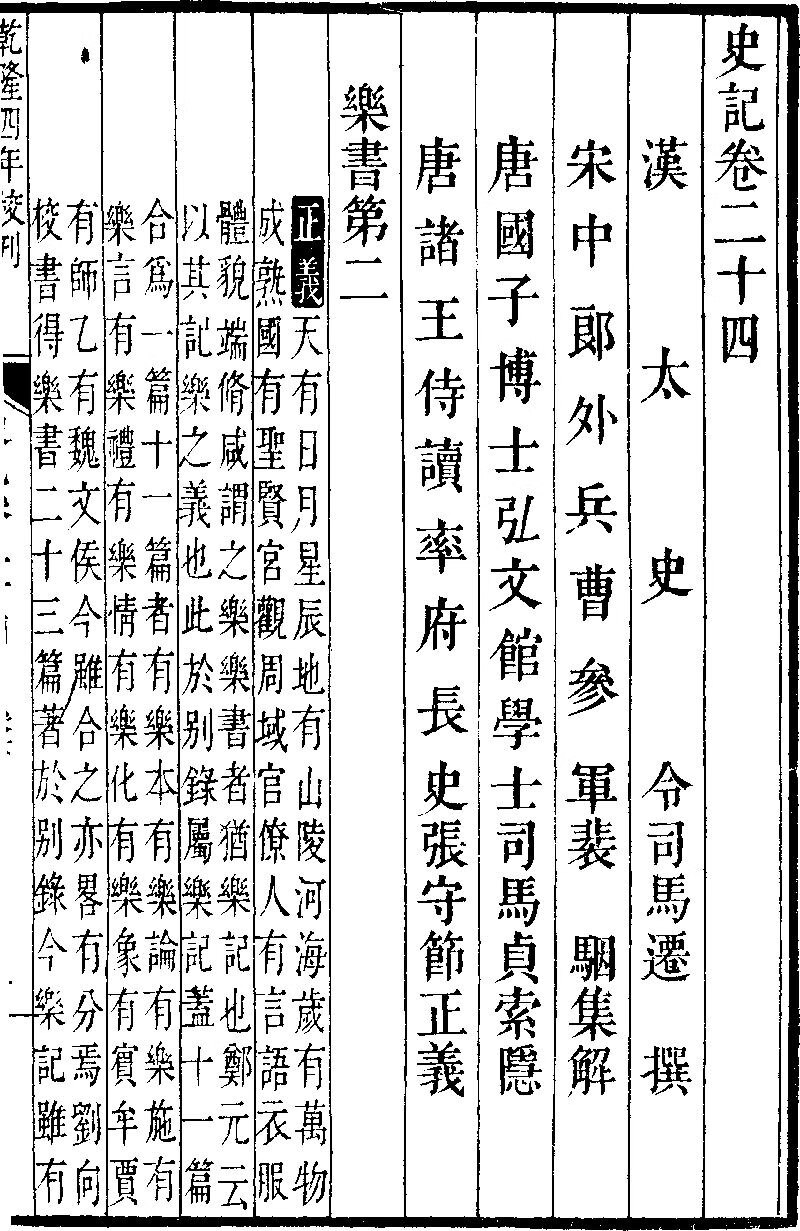 史記卷二十四
漢太史令司馬遷撰
宋中郎外兵曹參軍裴駰集解
唐國子博士弘文館學士司馬貞索隱
唐諸王侍讀率府長史張守節正義
樂書第二
正義天有日月星辰地有山陵河海歲有萬物
成熟國有聖賢宮觀周域官僚人有言語衣服
體貌端脩咸謂之樂樂書者猶樂記也鄭元云
以其記樂之義也此於別錄屬樂記蓋十一篇
合爲一篇十一篇者有樂本有樂論有樂施有
樂言有樂禮有樂情有樂化有樂象有賓牟賈
有師乙有魏文侯今雖合之亦畧有分焉劉向
校書得樂書二十三篇著於別錄今樂記雖有
乾隆四年校刊